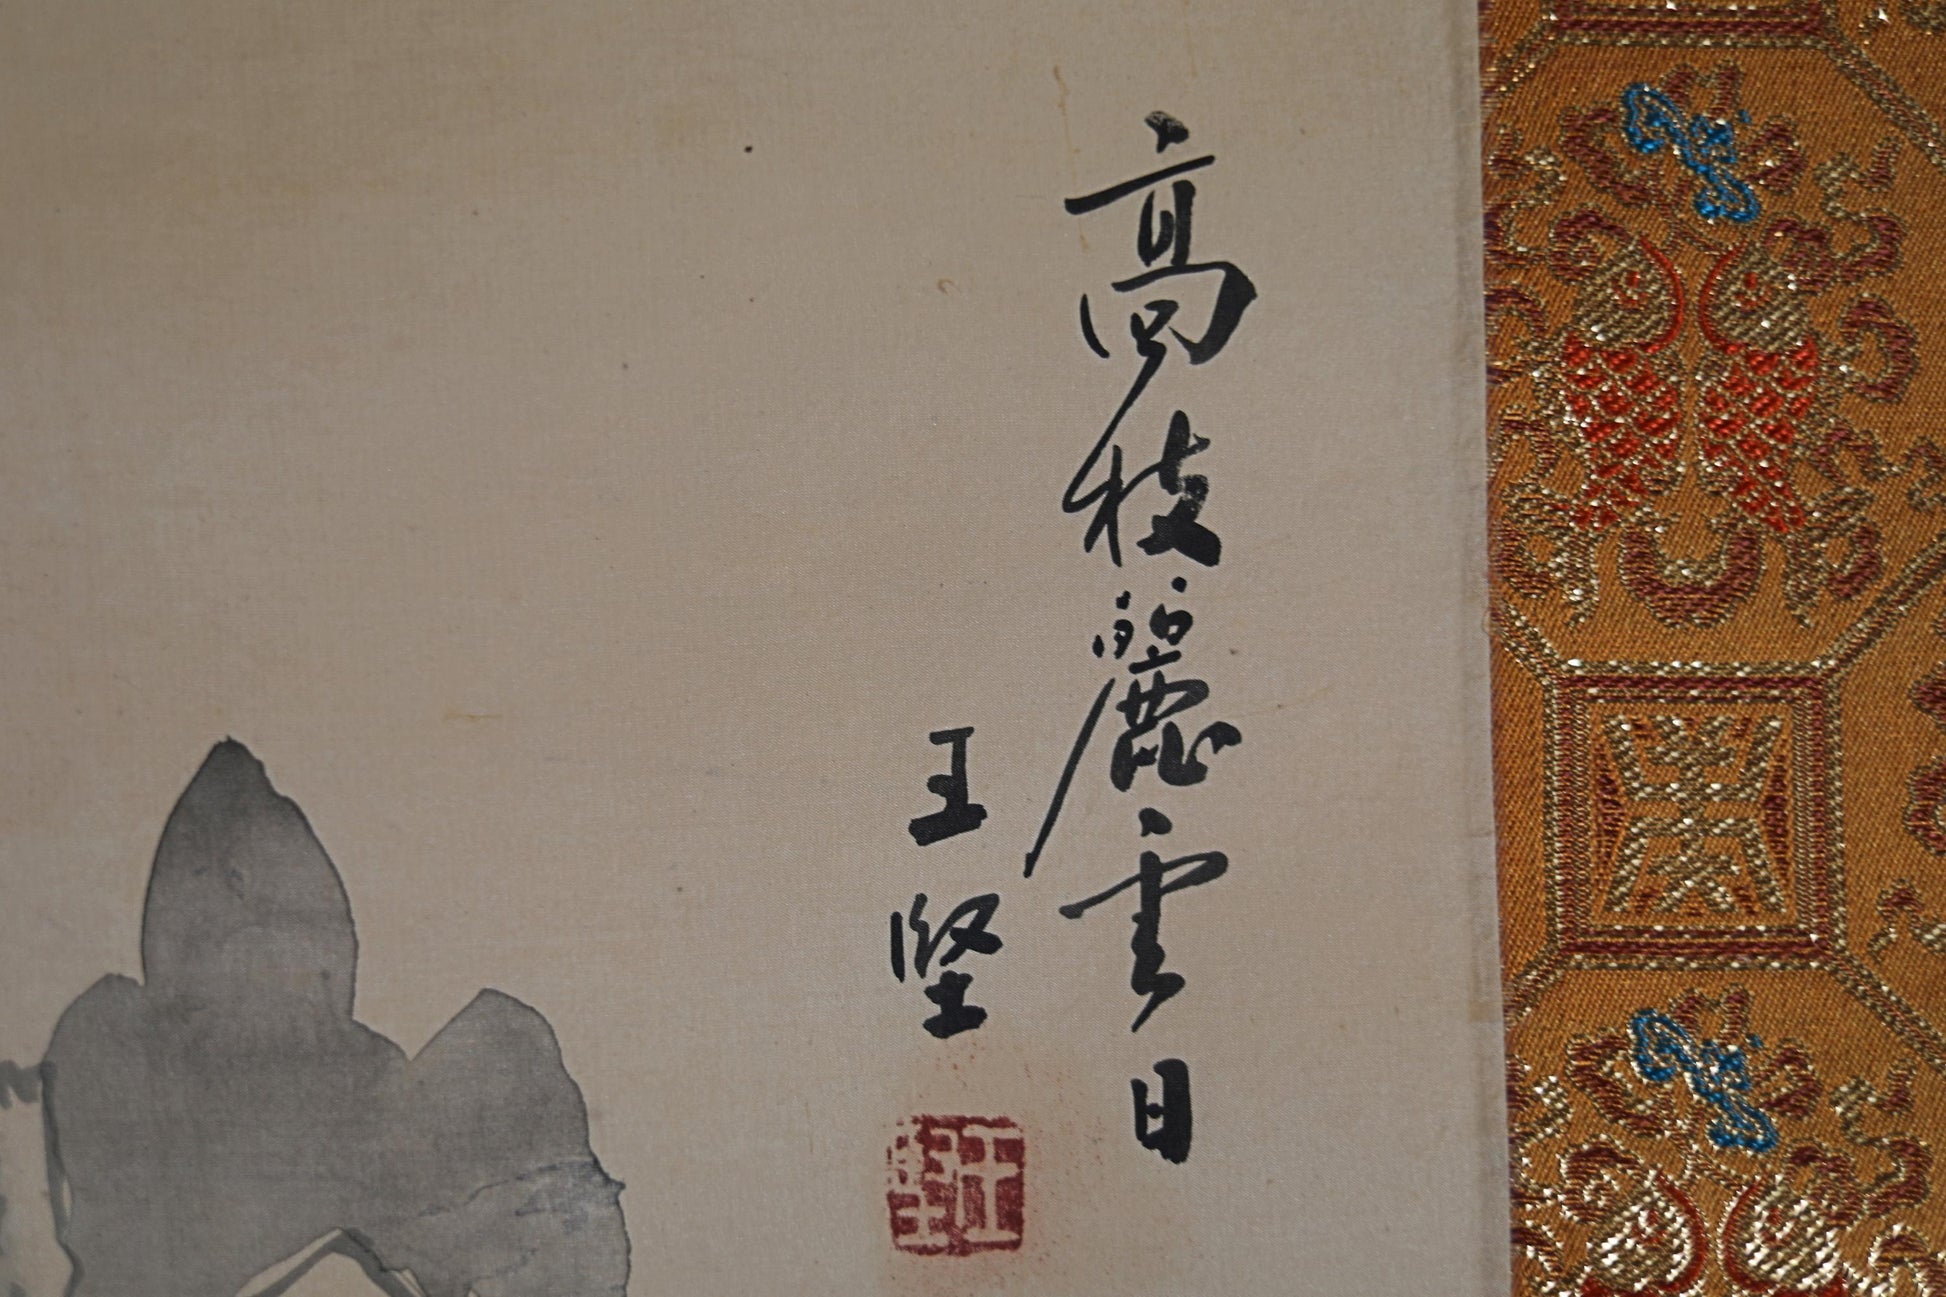 高枝麗雲日
王堅